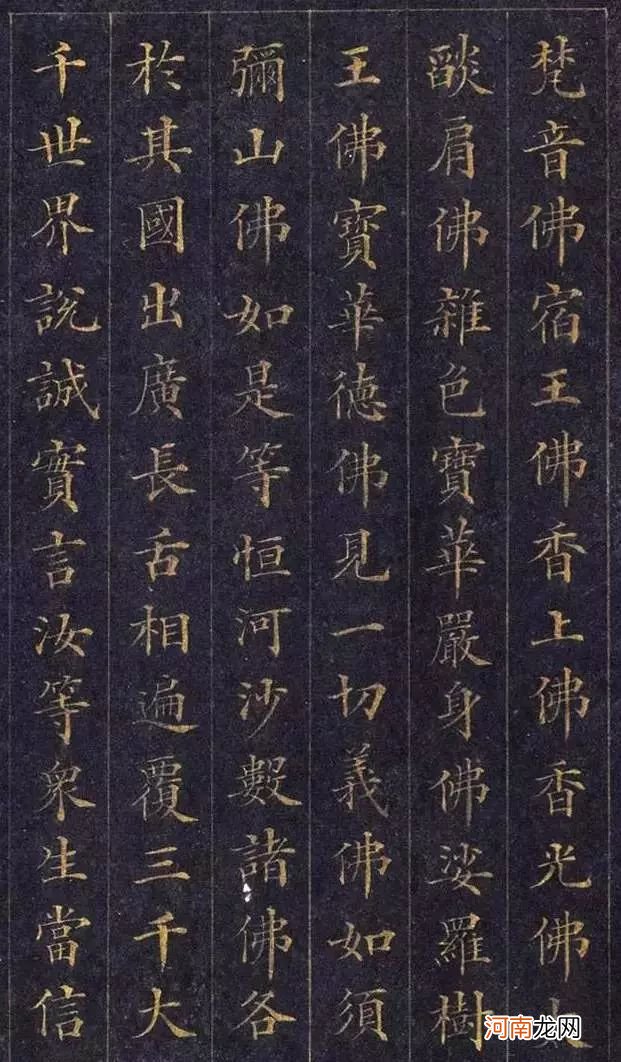 梵音佛宿王佛香上佛香光佛大
𦦨肩佛雜色寶華嚴身佛娑羅樹
王佛寶華德佛見一切義佛如須
彌山佛如是等恒河沙數諸佛各
於其國出廣長舌相遍覆三千大
千世界說誠實言汝等眾生當信
河南龙网